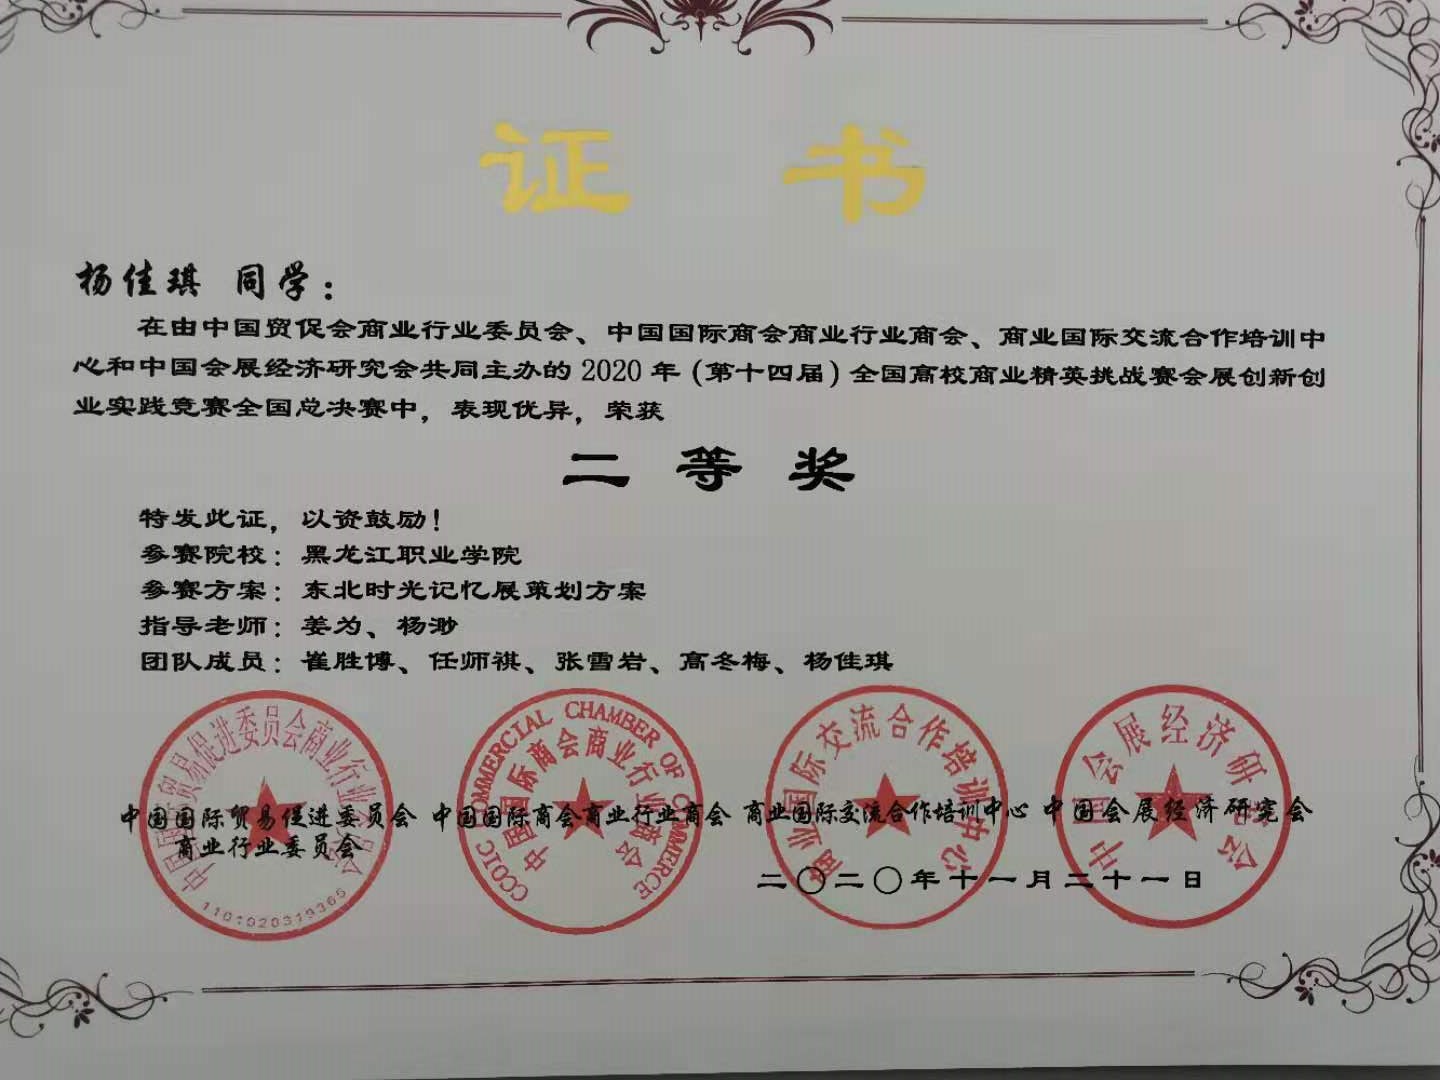 证 书
杨佳琪 同学：
在由中国贸促会商业行业委员会、中国国际商会商业行业商会、商业国际交流合作培训中
心和中国会展经济研究会共同主办的 2020 年（第十四届）全国高校商业精英挑战赛会展创新创
业实践竞赛全国总决赛中，表现优异，荣获
二 等 奖
特发此证，以资鼓励！
参赛院校：黑龙江职业学院
参赛方案：东北时光记忆展策划方案
指导老师：姜为、杨渺
团队成员：崔胜博、任师祺、张雪岩、高冬梅、杨佳琪
中国国际贸易促进委员会商业行业委员会
CCOIC COMMERCIAL CHAMBER OF COMMERCE
中国国际商会商业行业商会
商业国际交流合作培训中心
中国会展经济研究会
中国国际贸易促进委员会 中国国际商会商业行业商会 商业国际交流合作培训中心 中国会展经济研究会
商业行业委员会
二〇二〇年十一月二十一日